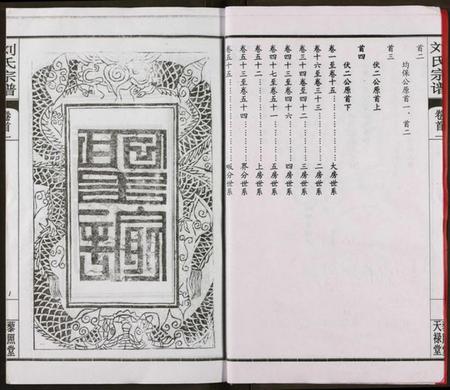 刘氏宗谱
卷首一
天禄堂
首二
均保公原首一、首二
首三
伏二公原首上
首四
伏二公原首下
卷一至卷十五……………大房世系
卷十六至卷三十三…………二房世系
卷三十四至卷四十二………三房世系
卷四十三至卷四十六………四房世系
卷四十七至卷五十一………五房世系
卷五十二………………上房世系
卷五十三至卷五十四………界分世系
卷五十五………………分世系
刘氏宗谱
卷首一
1
藜照堂